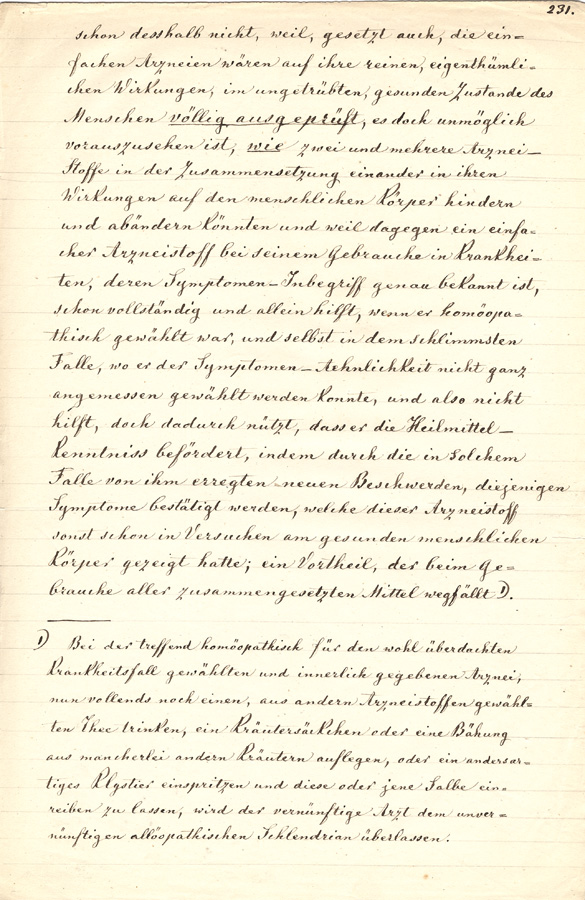 231.
schon desshalb nicht, weil, gesetzt auch, die ein=
fachen Arzneien wären auf ihre reinen, eigenthümli=
chen Wirkungen, im ungetrübten, gesunden Zustande des
Menschen völlig ausgeprüft, es doch unmöglich
vorauszusehen ist, wie zwei und mehrere Arznei=
Stoffe in der Zusammensetzung einander in ihren
Wirkungen auf den menschlichen Körper hindern
und abändern könnten und weil dagegen ein einfa=
cher Arzneistoff bei seinem Gebrauche in Krankhei=
ten, deren Symptomen=Inbegriff genau bekannt ist,
schon vollständig und allein hilft, wenn er homöopa=
thisch gewählt war, und selbst in dem schlimmsten
Falle, wo er der Symptomen=Aehnlichkeit nicht ganz
angemessen gewählt werden konnte, und also nicht
hilft, doch dadurch nützt, dass er die Heilmittel=
Kenntniss befördert, indem durch die in solchem
Falle von ihm erregten neuen Beschwerden, diejenigen
Symptome bestätigt werden, welche dieser Arzneistoff
sonst schon in Versuchen am gesunden menschlichen
Körper gezeigt hatte; ein Vortheil, der beim Ge=
brauche aller zusammengesetzten Mittel wegfällt 1).
1) Bei der treffend homöopathisch für den wohl überdachten
Krankheitsfall gewählten und innerlich gegebenen Arznei,
nun vollends noch einen, aus andern Arzneistoffen gewähl=
ten Thee trinken, ein Kräutersäckchen oder eine Bähung
aus mancherlei andern Kräutern auflegen, oder ein andersar=
tiges Klystier einspritzen und diese oder jene Salbe ein=
reiben zu lassen, wird der vernünftige Arzt dem unver=
nünftigen allöopathischen Schlendrian überlassen.